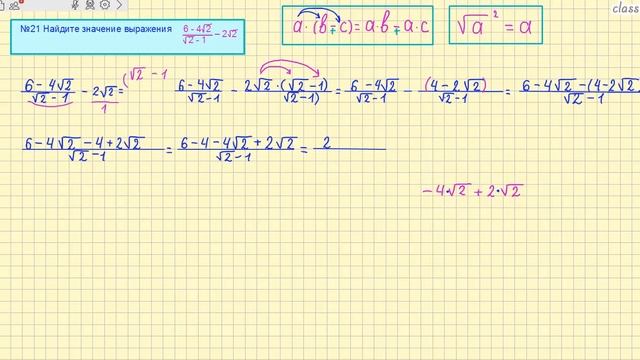 class
№21 Найдите значение выражения (6 - 4√2)/(√2 - 1) - 2√2
a·(b∓c)=a·b∓a·c
√a² = a
(6 - 4√2)/(√2 - 1) - 2√2/1 = (√2 - 1 (6 - 4√2)/(√2 - 1) - (2√2·(√2 - 1))/(√2 - 1) = (6 - 4√2)/(√2 - 1) - (4 - 2√2)/(√2 - 1) = (6 - 4√2 - (4 - 2√2)/(√2 - 1)
(6 - 4√2 - 4 + 2√2)/(√2 - 1) = (6 - 4 - 4√2 + 2√2)/(√2 - 1) = 2
- 4·√2 + 2·√2